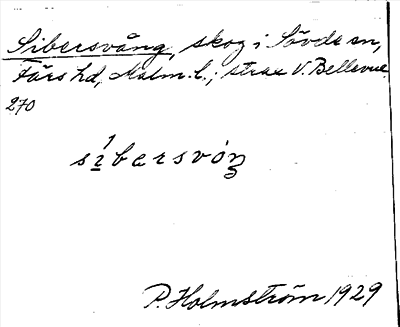 Sibersvång, skog i Sövde sn,
Färs hd, Malm. l.; strax V. Bellevue
270
síbersvóŋ
P. Holmström 1929